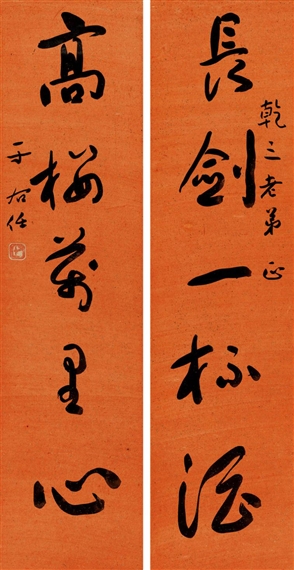 長劍一杯酒
乾三老弟正
高樓萬里心
于右任